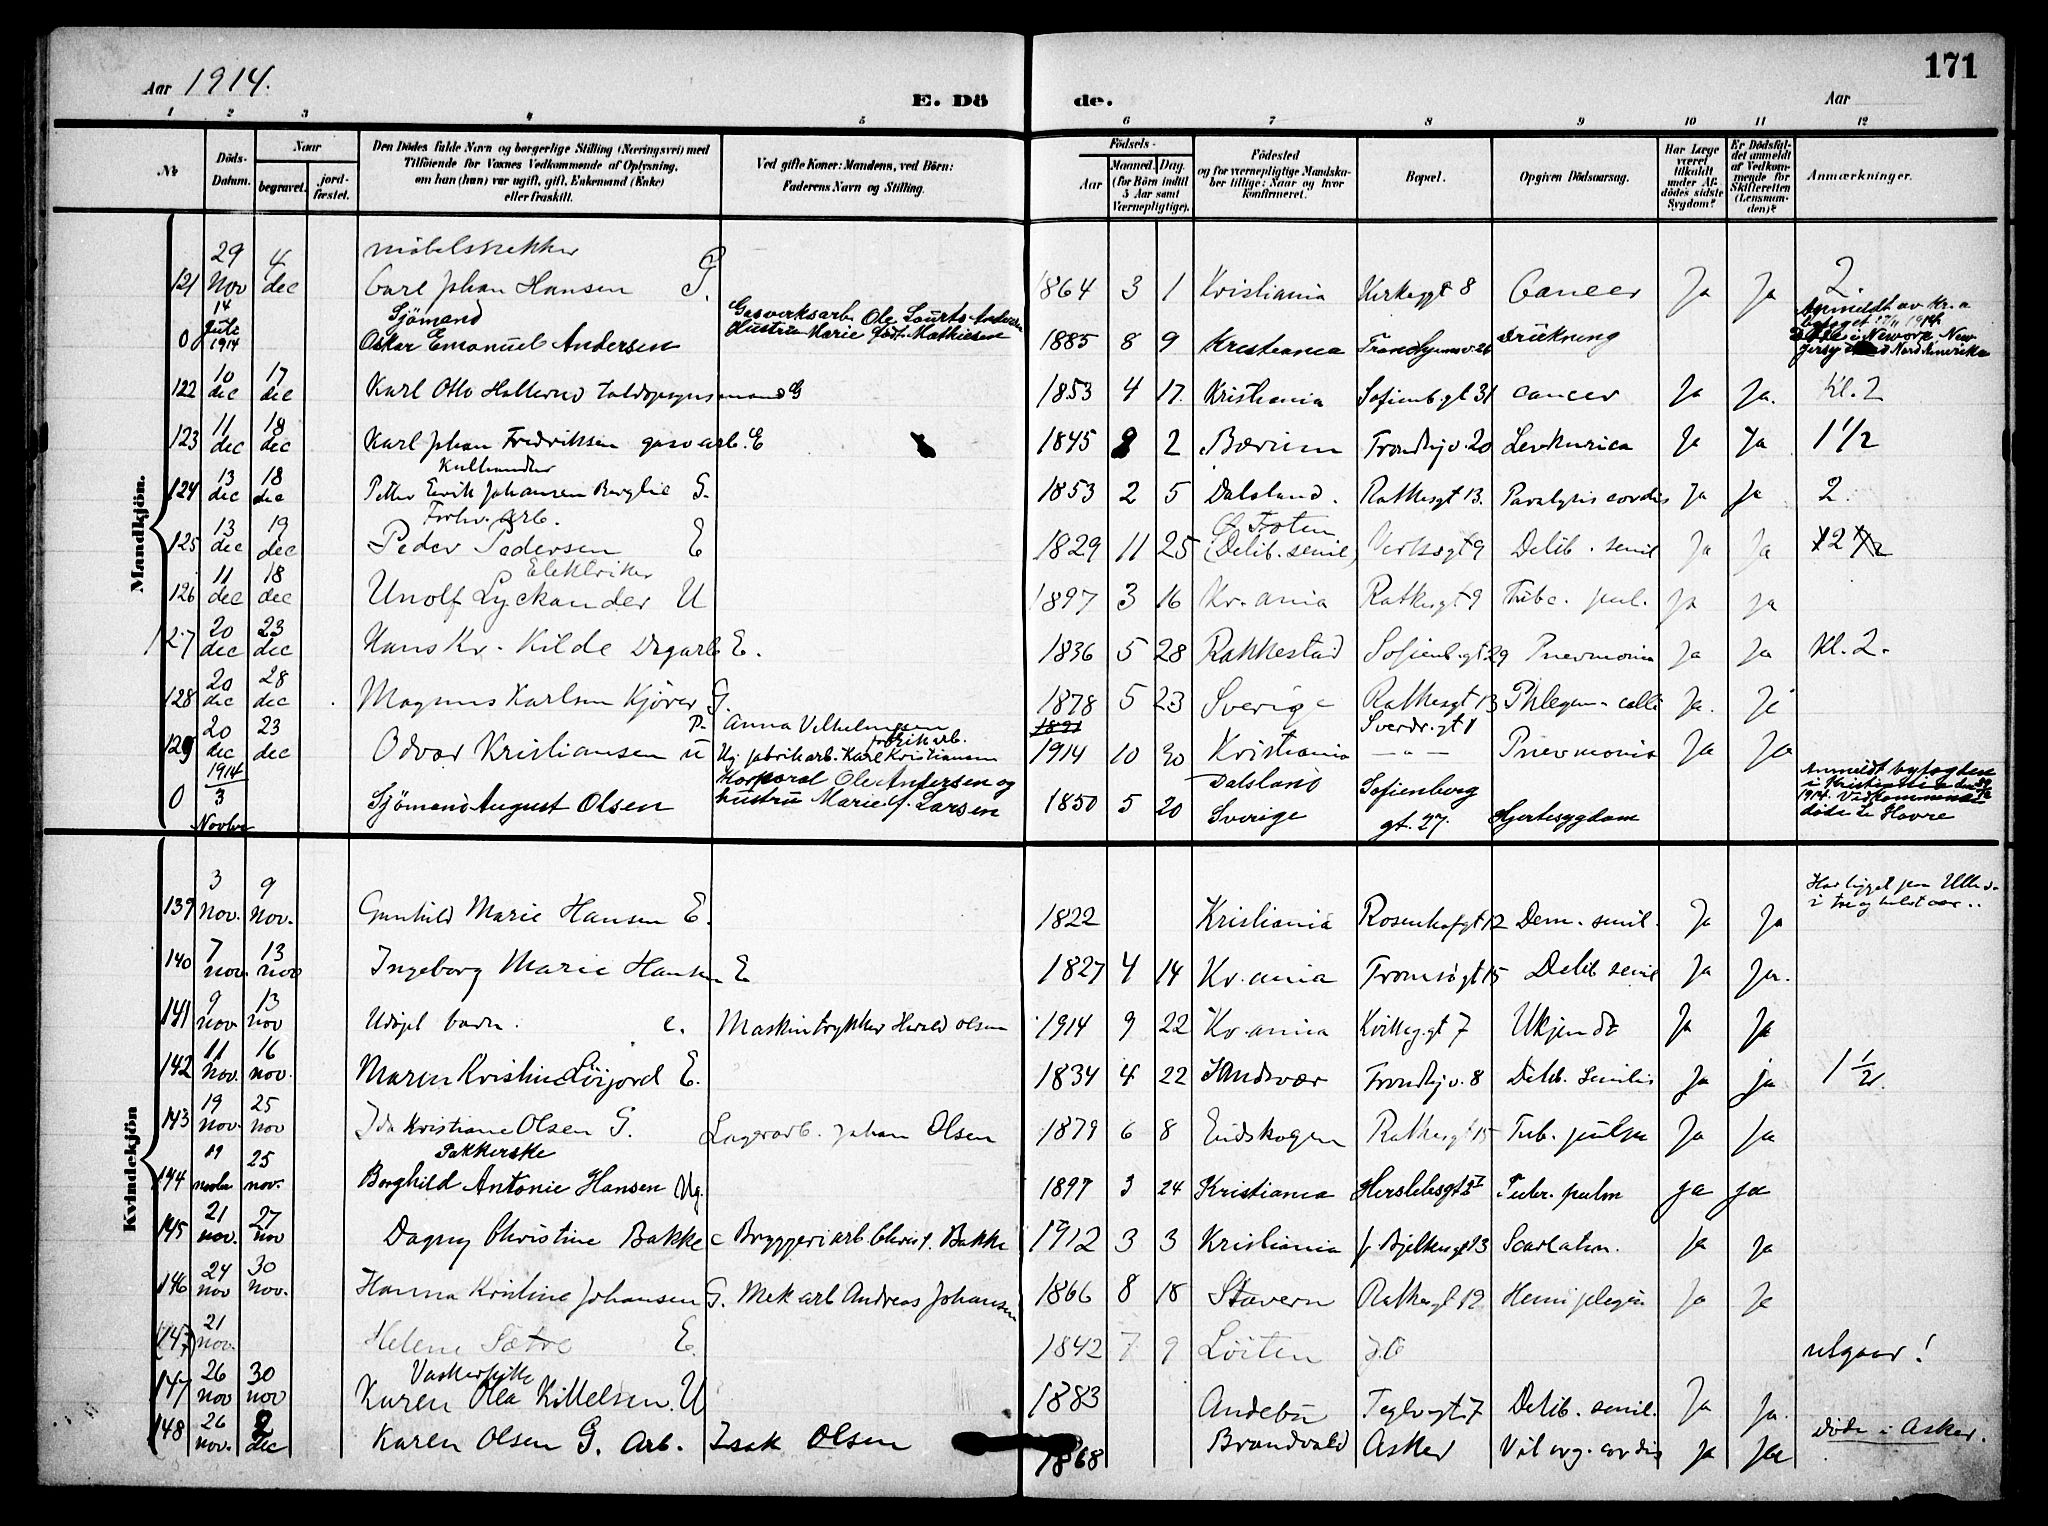 171
Aar 1914.
E. Döde.
Aar
1 2 3 4 5 6 7 8 9 10 11 12
No
Döds-Datum.
Naar
begravet.
jord-fæstet.
Den Dödes fulde Navn og borgerlige Stilling (Næringsvei) med
Tilföiende for Voxnes Vedkommende af Oplysning,
om han (hun) var ugift, gift, Enkemand (Enke)
eller fraskilt.
Ved gifte Koner: Mandens, ved Börn:
Faderens Navn og Stilling.
Födsels-
Aar
Maaned. Dag.
(for Börn indtil
5 Aar samt
Værnepligtige).
Födested
og for værnepligtige Mandska-
ber tillige: Naar og hvor
konfirmeret.
Bopæl.
Opgiven Dödsaarsag.
Har Læge
været
tilkaldt
under Af-
dödes sidste
Sygdom?
Er Dödsfal-
det anmeldt
af Vedkom-
mende for
Skifteretten
(Lensman-
den)?
Anmærkninger.
Mandkjön.
121 29 Nov 4 dec Carl Johan Hansen G. 1864 3 1 Kristiania Kirkegt 8 Cancer Ja Ja 2.
0 14 Juli 1914 Sjömand Oskar Emanuel Andersen Gasverksarb. Ole Andersen Hustru Marie født Mathiesen 1885 8 9 Kristiania Trondhjemsv. 26 Drukning Anmeldt av Kr.a 1914. Døde i New Jersey Nord Amerika
122 10 dec 17 dec Karl Otto G 1853 4 17. Kristiania Sofienb.gt 31 cancer Ja Ja. Kl. 2
123 11 dec 18 dec Karl Johan Fredriksen gasv arb. E 1845 8 2 Bærum Trondhj v. 20 Ja Ja 1 1/2
124 13 dec 18 dec Kulhandler Petter Envik Johansen Berglie G. 1853 2 5 Dalsland. Rathesgt 13. Paralysis cordis Ja Ja 2.
125 13 dec 19 dec Forhv. Arb. Peder Pedersen E 1829 11 25 Ø Toten (Delib. senil) Verksgt 9 Delib. senil Ja Ja 2
126 11 dec 18 dec Elektriker Unolf Lyckander U 1897 3 16 Kr.ania Rathesgt 9 Tubc. pul. Ja Ja
127 20 dec 23 dec Hans Kr. Kilde Dagarb E. 1836 5 28 Rakkestad Sofienb.gt. 29 Pnevmonia Ja Ja Kl. 2.
128 20 dec 28 dec Magnus Karlsen Kjörer G. 1878 5 23 Sverige Rathesgt 13 Phlegm. colli Ja. Ja
129 20 dec 23 dec Odvar Kristiansen u P. Anna Vilhelmsen fabrikarb. Ug. fabrikarb. Karl Kristiansen 1891 1914 10 30 Kristiania Sverdr.gt 1 — " — Pnevmonia Ja Ja
0 1914 3 Novbr Sjömand August Olsen Korporal Ole Andersen og hustru Marie f. Larsen 1850 5 20 Dalsland Sverige Sofienberg gt. 27. Hjertesygdom Anmeldt byfogden i Kristiania den 1914. Vedkommende døde i Havre
Kvindekjön
139 3 nov. 9 nov. Gunhild Marie Hansen E. 1822 Kristiania Rosenhofgt 12 Dem. senil. Ja Ja Har ligget paa Ullev. i tre og halvt aar..
140 7 nov. 13 nov Ingeborg Marie Hansen E 1827 4 14 Kr.ania Tromsögt 15 Delib senil Ja Ja.
141 9 nov. 13 nov Udöpt barn. c. Maskintrykker Harald Olsen 1914 9 22 Kr.ania 7 Ukjendt Ja Ja
142 11 nov. 16 nov. Maren Kristine E. 1834 4 22 Sandsvær Trondhj v. 8 Delib. Senilis Ja Ja 1 1/2.
143 19 nov. 25 nov Ida Kristiane Olsen G. Lagerarb. Johan Olsen 1879 6 8 Eidskogen Rathesgt 15 Tub. pulm Ja Ja
144 19 novbr 25 nov. Pakkerske Borghild Antonie Hansen Ug. 1897 3 24 Kristiania Herslebsgt Tuber. pulm Ja Ja
145 21 nov. 27 nov Dagny Christine Bakke c Bryggeriarb. Christ. Bakke 1912 3 3 Kristiania J. Bjelkesgt 13 Scarlatin. Ja Ja
146 24 nov 30 nov. Hanna Kristine Johansen G. Mek arb Andreas Johansen 1866 8 18 Stavern Rathesgt 19 Hemiplegia Ja Ja
(147) 21 nov. Helene Sætre E. 1842 7 9 Löiten utgaar!
147 26 nov 30 nov Vaskerhjelp Karen Olea Kittelsen. U 1883 Andebu Teglv.gt. 7 Delib. senil. Ja Ja.
148 26 nov. 2 dec Karen Olsen G. Arb. Isak Olsen 1868 Brandvald Asker Vit. org. cordis Ja Ja Döde i Asker.